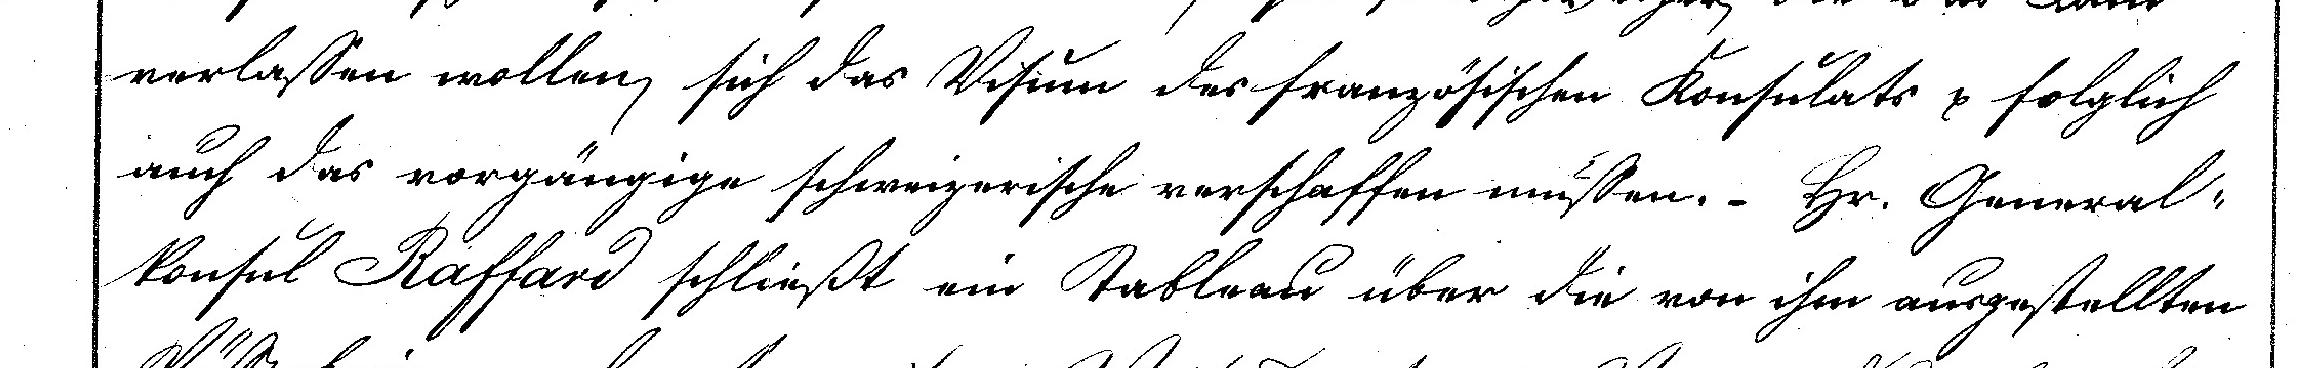 das Land
verlassen wollen, sich das Visum des französischen Konsulats & folglich
auch das vorgängige schweizerische verschaffen müssen. - Hr. General-
konsul Raffard schließt ein Tableau über die von ihm ausgestellten